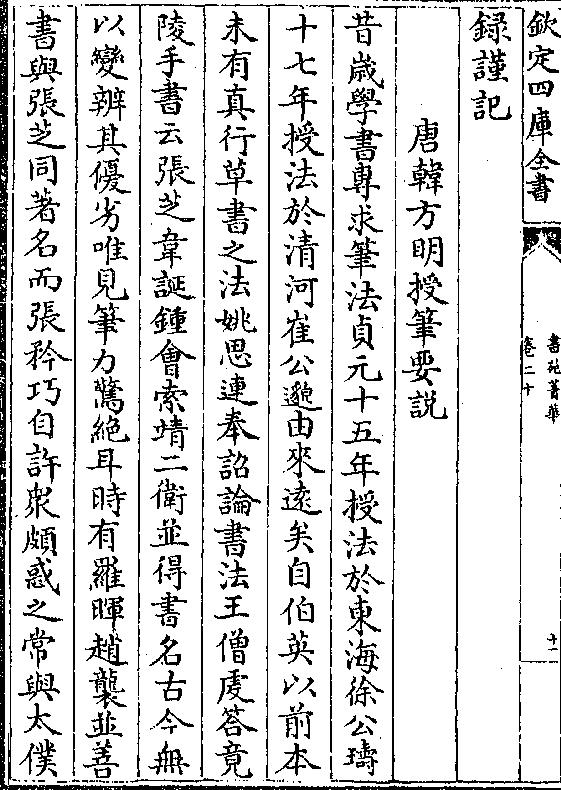 欽定四庫全書
書苑菁華
卷二十
十一
録謹記
唐韓方明授筆要説
昔嵗學書專求筆法貞元十五年授法於東海徐公璹
十七年授法於清河崔公邈由來逺矣自伯英以前本
未有真行草書之法姚思連奉詔論書法王僧䖍答竟
陵手書云張芝韋誕鍾會索靖二衛並得書名古今無
以變辨其優劣唯見筆力驚絶耳時有羅暉趙襲並善
書與張芝同著名而張矜巧自許衆頗惑之常與太僕